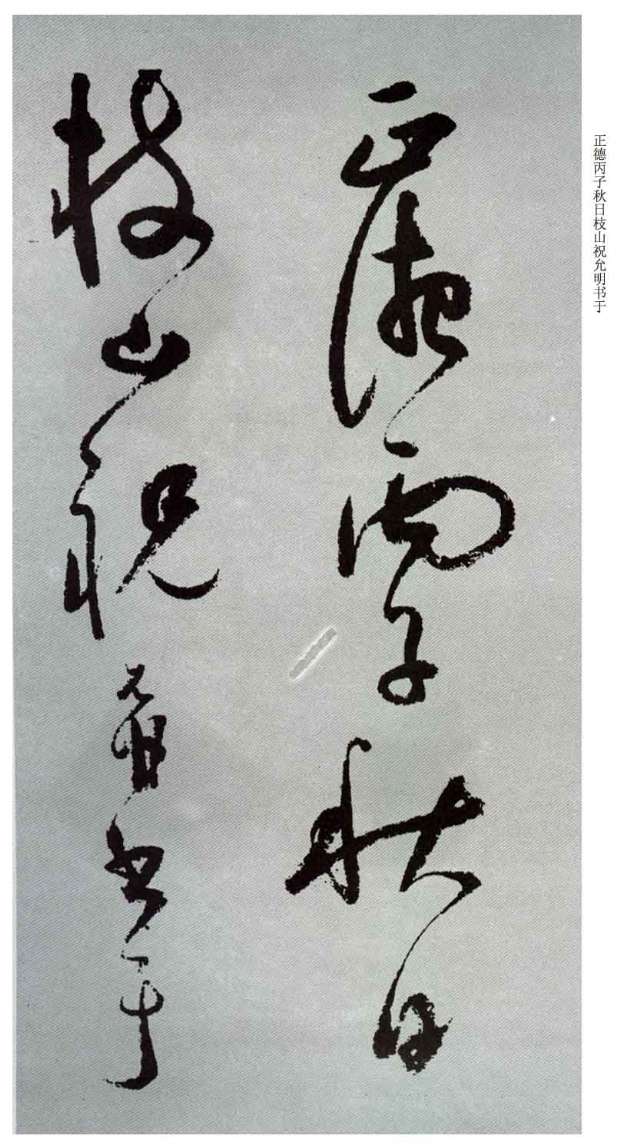 正德丙子秋日
枝山祝允明书于
正德丙子秋日枝山祝允明书于